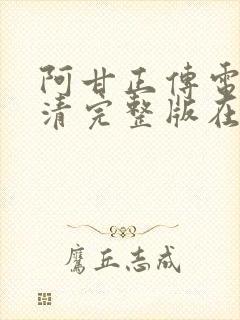 阿甘正傳電
清完整版在
鷹丘志成